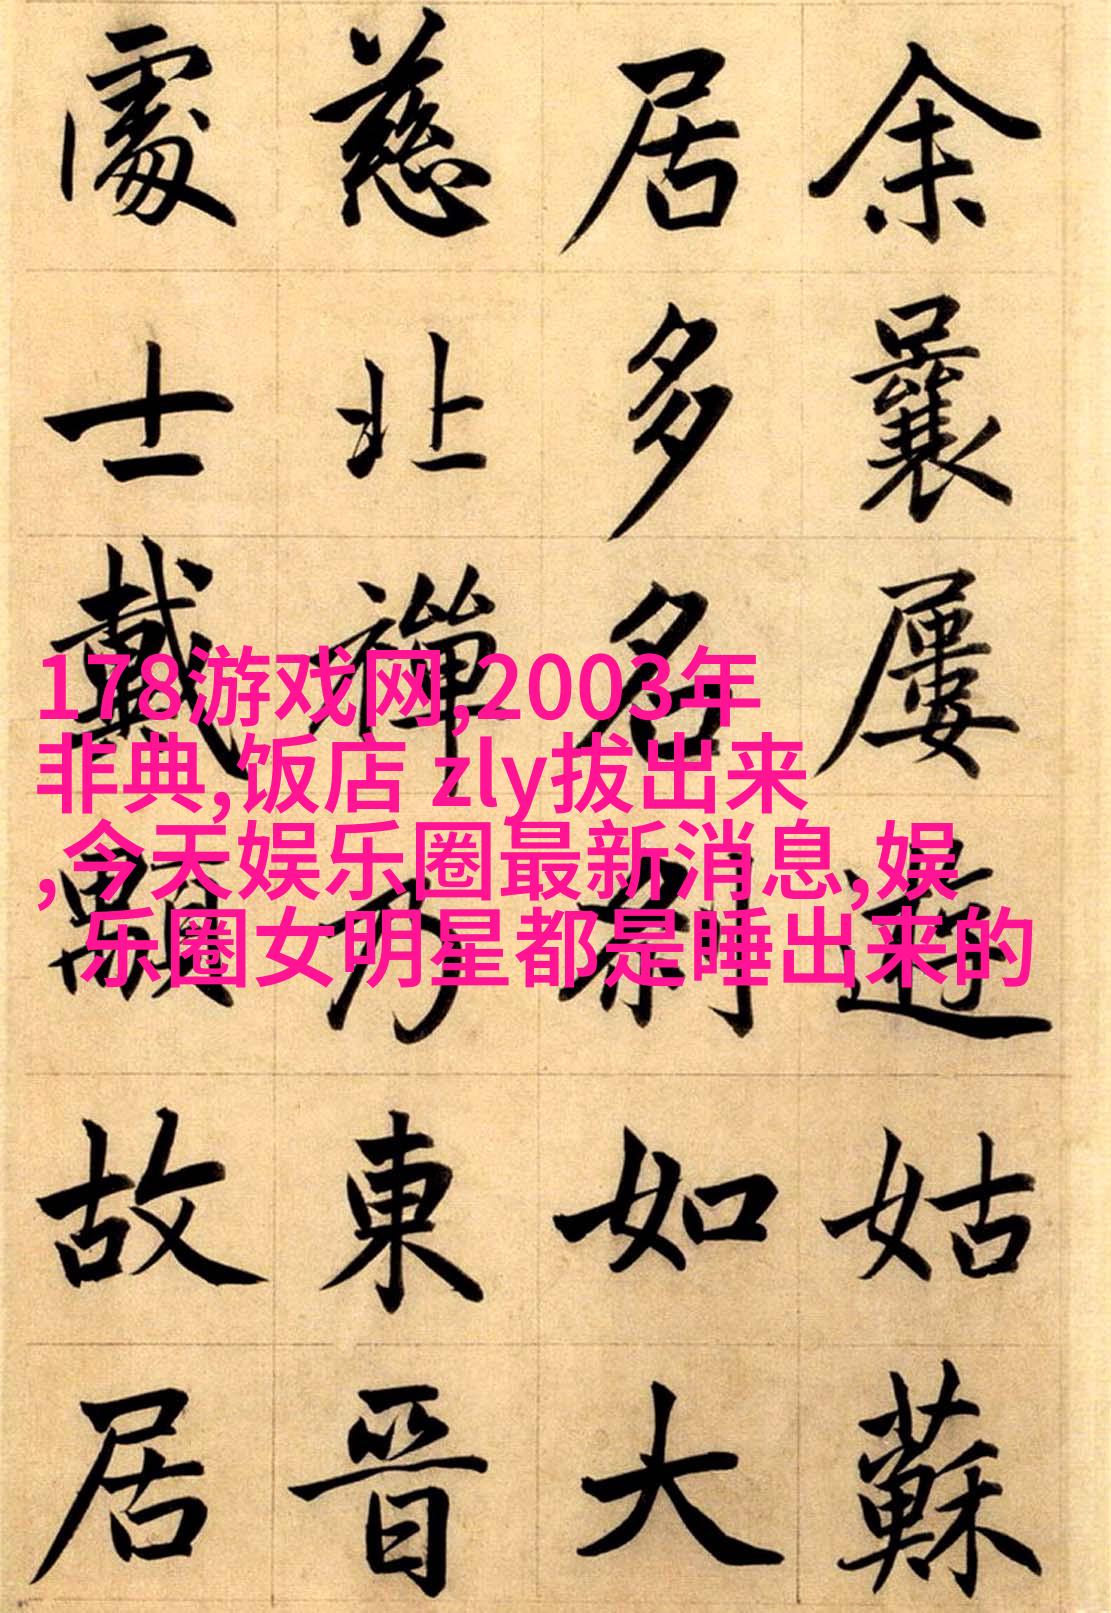 余曩屢遊姑蘇
居多名刹如大
慈北禪乃東晉
處士戴顒故居
178游戏网,2003年
非典,饭店 zly拔出来
,今天娱乐圈最新消息,娱
乐圈女明星都是睡出来的